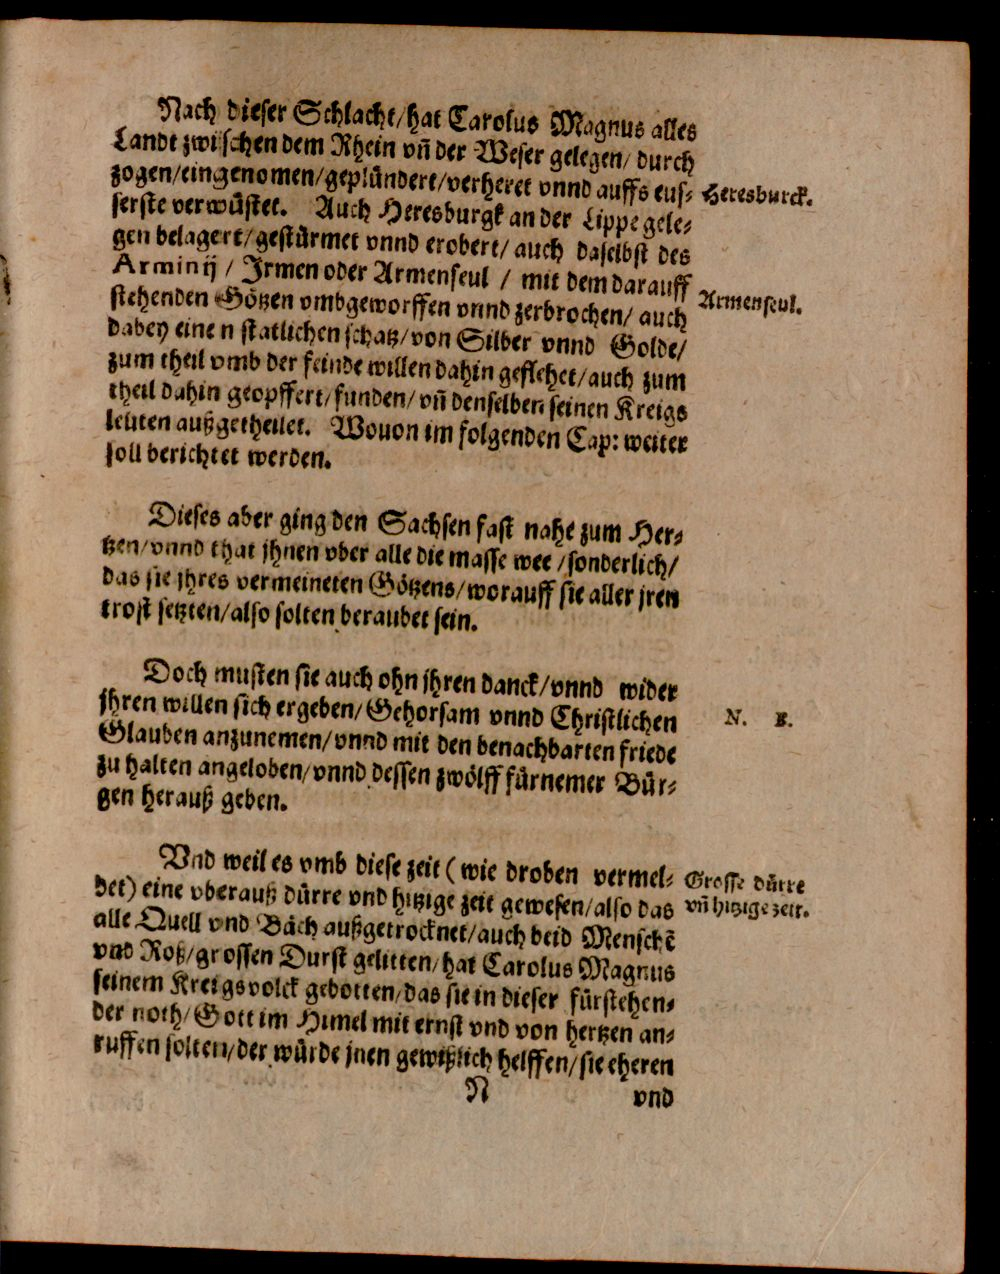 Nach dieser Schlacht/hat Carolus Magnus alles
Landt zwischen dem Rhein vn̄ der Weser gelegen/durch
zogen/eingenomen/geplündert/verheret vnnd auffs eus-
serste verwüstet. Auch Heresburgk an der Lippe gele-
gen belagert/gestürmet vnnd erobert/auch daselbst des
Arminij / Irmen oder Armenseul / mit dem darauff
stehenden Götzen vmbgeworffen vnnd zerbrochen/auch
dabey einen statlichen schatz/von Silber vnnd Golde/
zum theil vmb der feinde willen dahin geflehet/auch zum
theil dahin geopffert/funden/vn̄ denselben seinen Kreigs
leuten außgetheilet. Wouon im folgenden Cap: weiter
soll berichtet werden.
Heresburck.
Armenseul.
Dieses aber ging den Sachsen fast nahe zum Her-
tzen/vnnd that jhnen vber alle die masse wee/sonderlich/
das sie jhres vermeineten Götzens/worauff sie aller jren
trost setzten/also solten beraubet sein.
Doch musten sie auch ohn jhren danck/vnnd wider
jhren willen sich ergeben/Gehorsam vnnd Christlichen
Glauben anzunemen/vnnd mit den benachbarten friede
zu halten angeloben/vnnd dessen zwölff fürnemer Bür-
gen herauß geben.
N. B.
Vnd weil es vmb diese zeit (wie droben vermel-
det) eine vberauß dürre vnd hitzige zeit gewesen/also das
alle Quell vnd Bäch außgetrocknet/auch beid Menschē
vnd Roß/grossen Durst gelitten/hat Carolus Magnus
seinem Kreigsvolck gebotten/das sie in dieser fürstehen-
der noth/Gott im Himel mit ernst vnd von hertzen an-
ruffen solten/der würde jnen gewißlich helffen/sie eheren
Grosse dürre
vn̄ hitzige zeit.
N
vnd